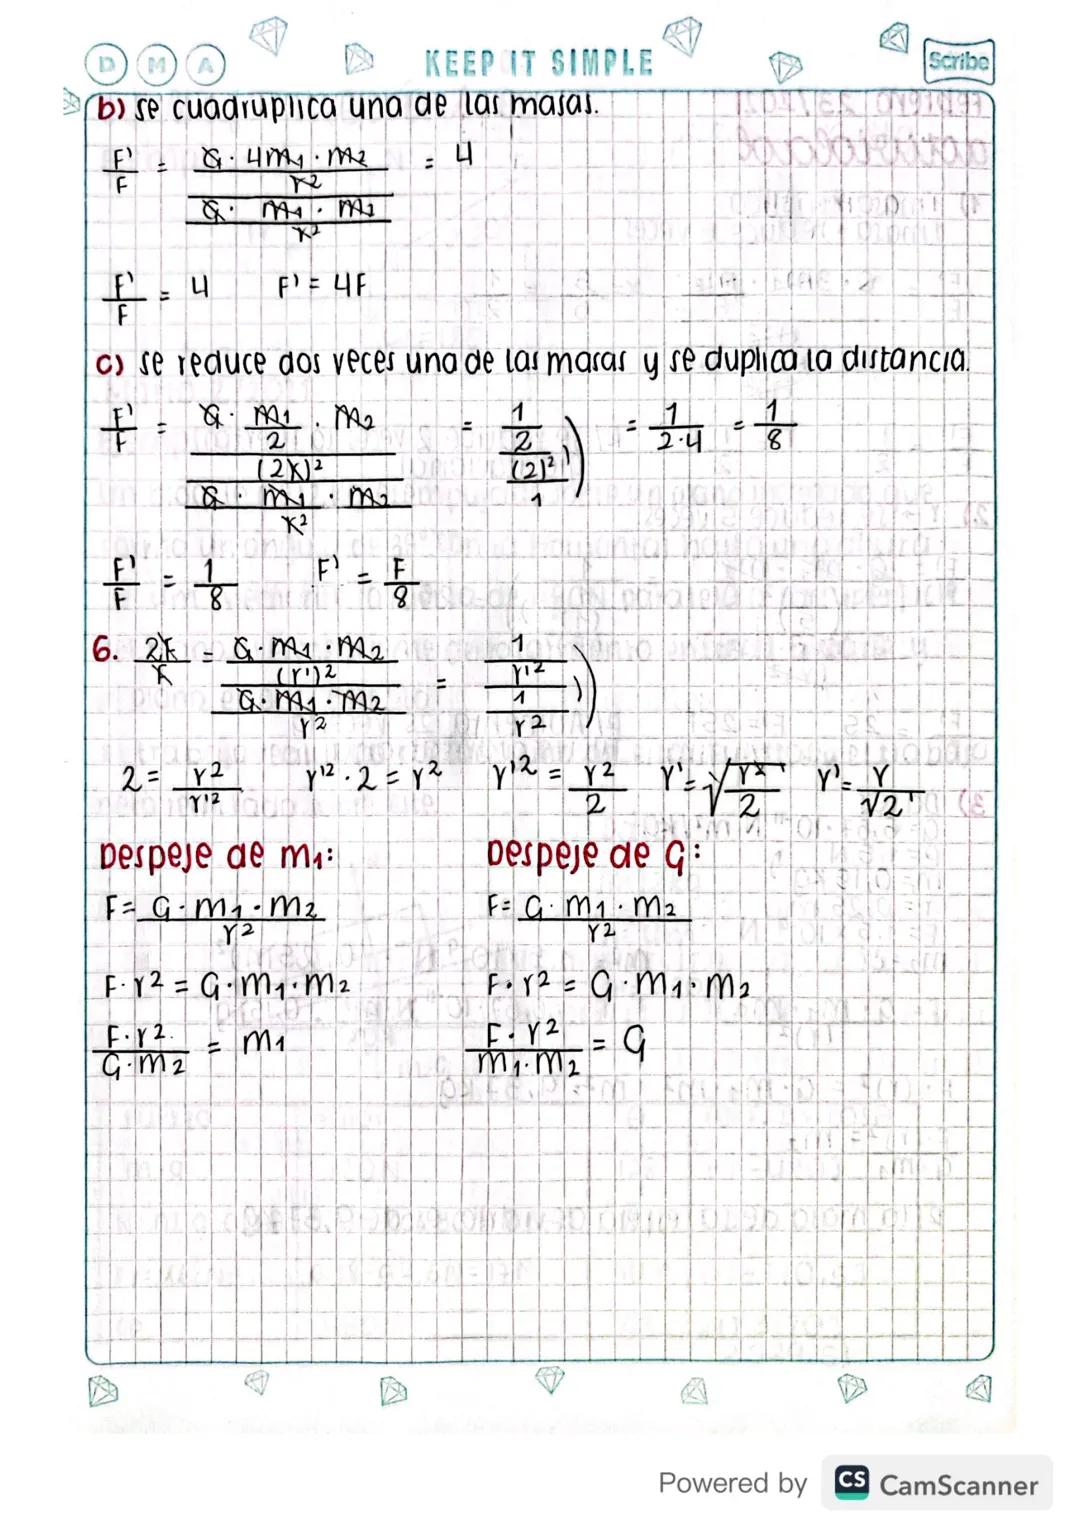 D M A KEEP IT SIMPLE Scribe
b) se cuadruplica una de las masas.
F'/F = (G · 4m₁ · m₂ / r²) / (G · m₁ · m₂ / r²) = 4
F'/F = 4 F' = 4F
c) se reduce dos veces una de las masas y se duplica la distancia.
F'/F = (G · m₁/2 · m₂ / (2r)²) / (G · m₁ · m₂ / r²) = (1/2) / ((2)²/1) = 1/2·4 = 1/8
F'/F = 1/8 F' = F/8
6. 2F/F = (G · m₁ · m₂ / (r')²) / (G · m₁ · m₂ / r²) = (1/r'²) / (1/r²)
2 = r²/r'² r'² · 2 = r² r'² = r²/2 r' = √(r²/2) r' = r/√2
Despeje de m₁: Despeje de G:
F = G · m₁ · m₂ / r² F = G · m₁ · m₂ / r²
F · r² = G · m₁ · m₂ F · r² = G · m₁ · m₂
F · r² / G · m₂ = m₁ F · r² / m₁ · m₂ = G
Powered by CS CamScanner